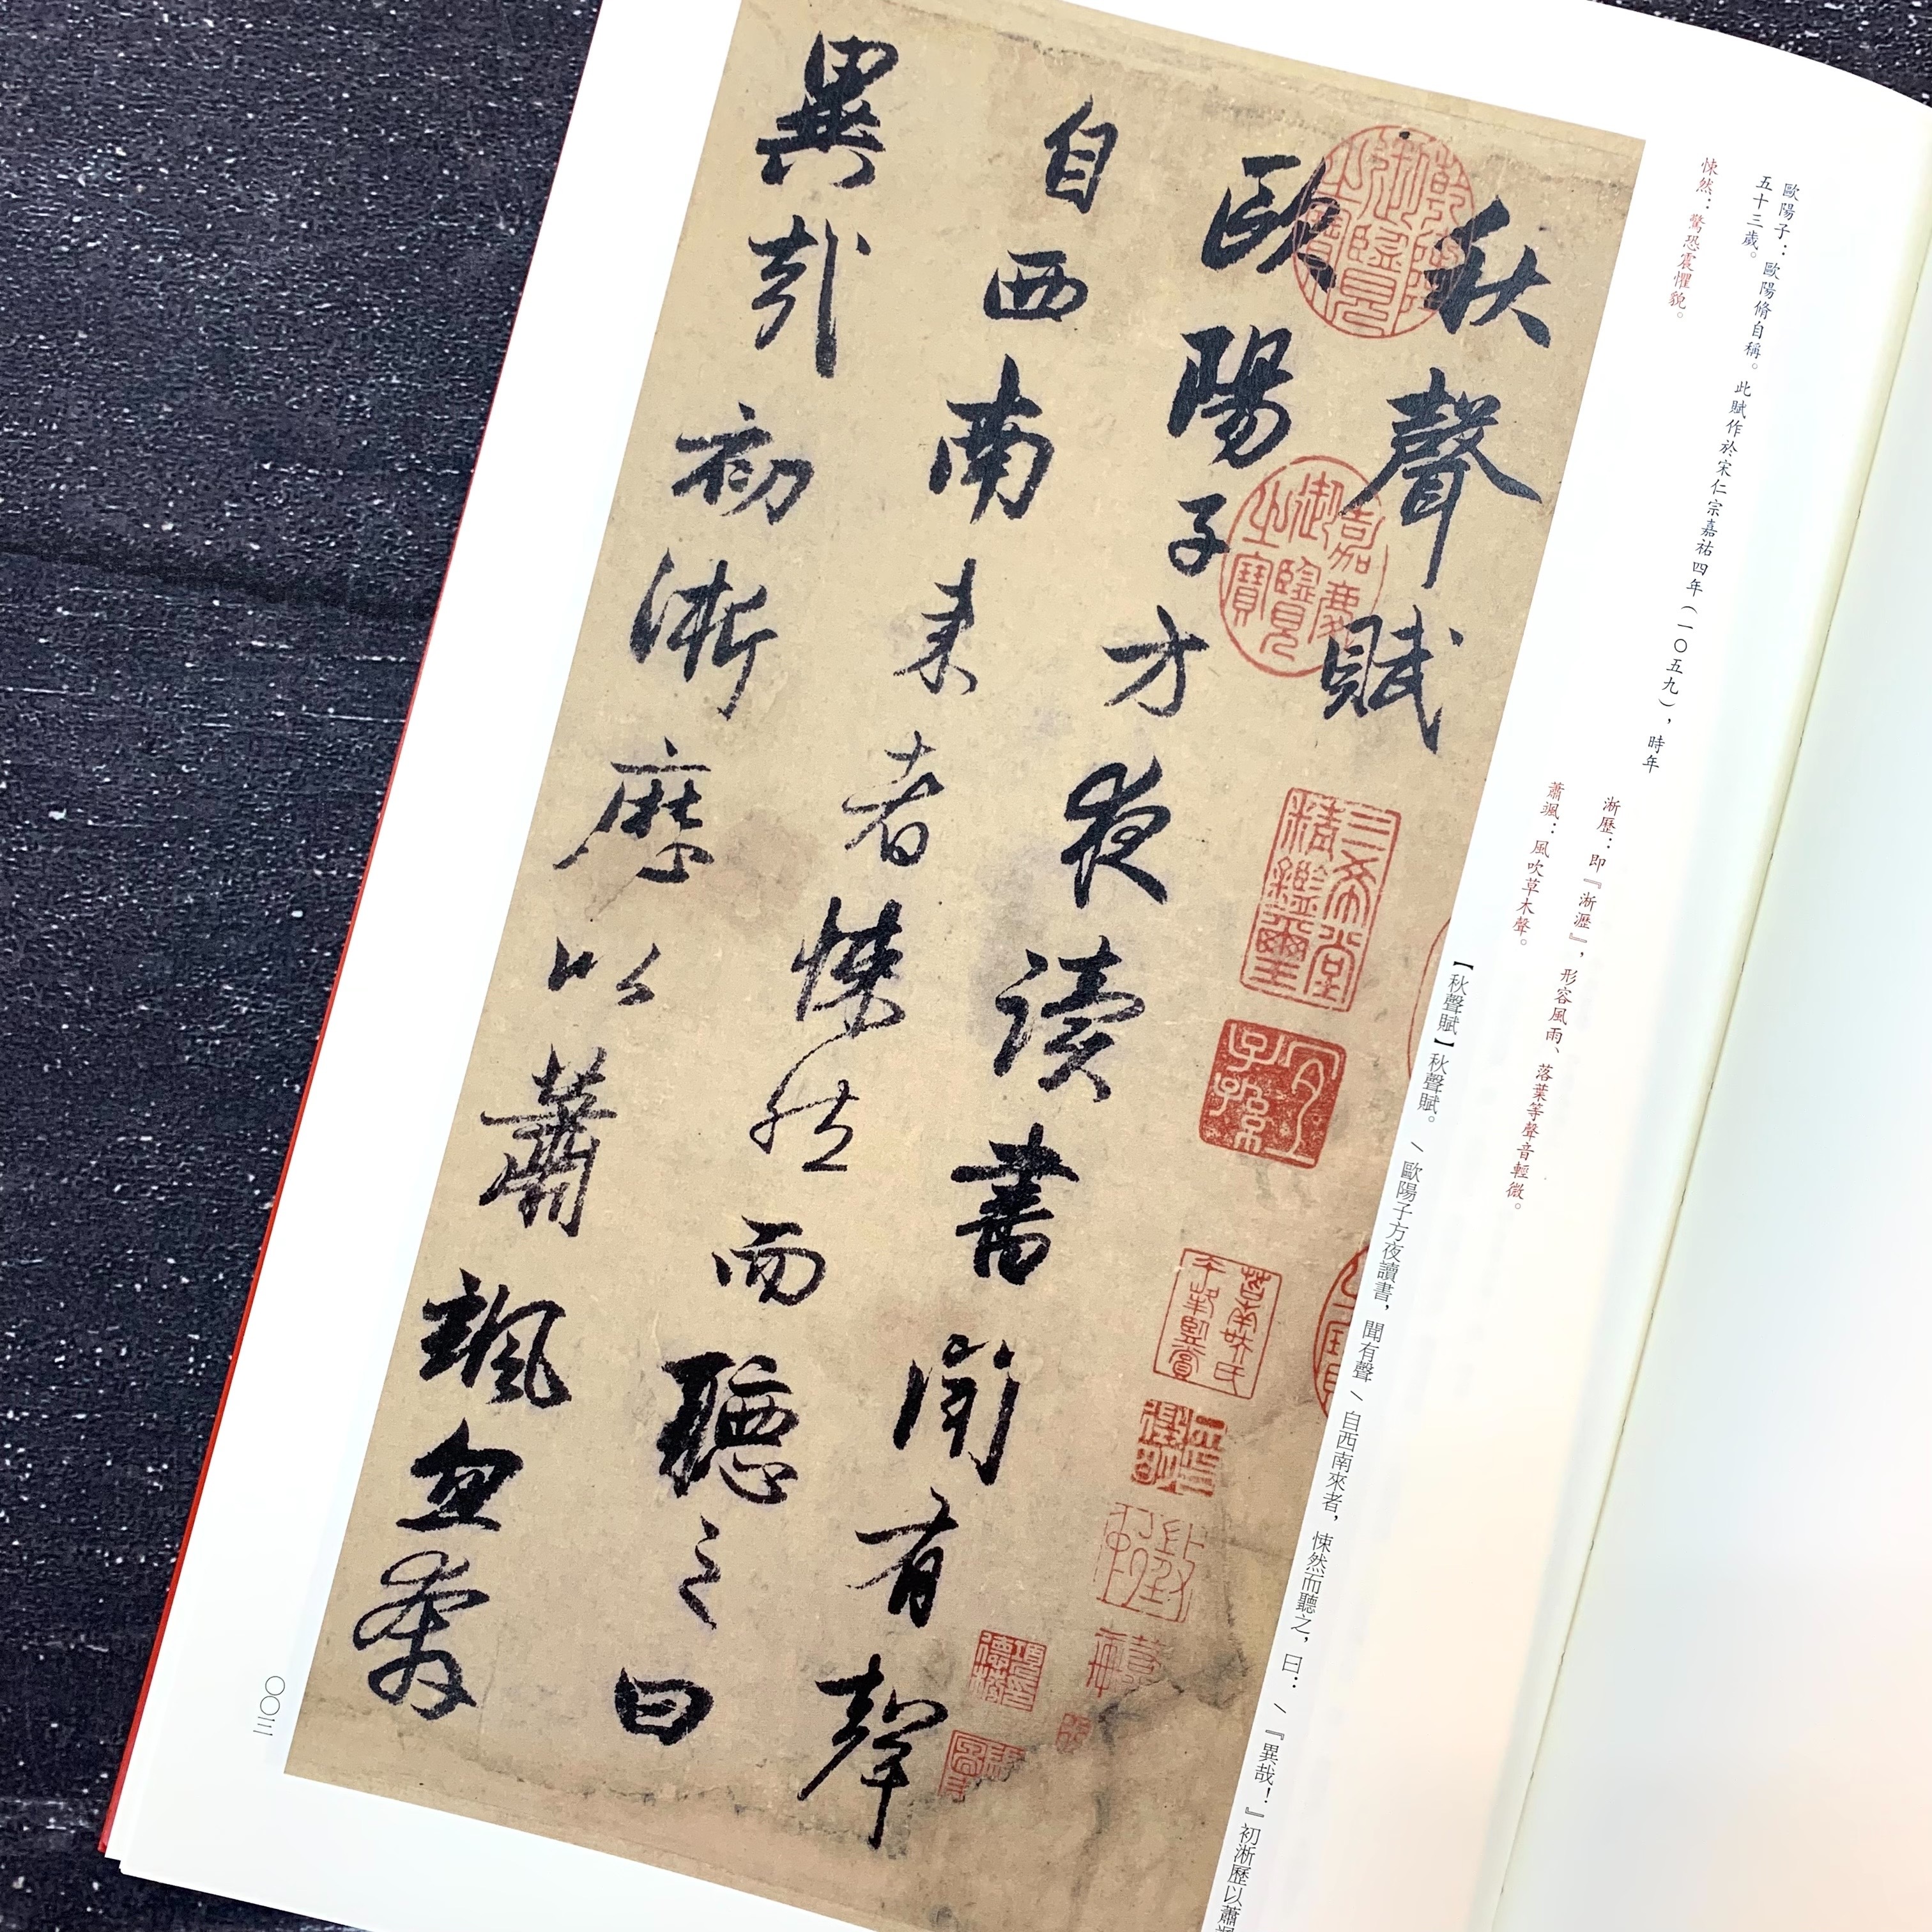 歐陽子：歐陽脩自稱。此賦作於宋仁宗嘉祐四年（一〇五九），時年
五十三歲。
悚然：驚恐震懼貌。
淅歷：即『淅瀝』，形容風雨、落葉等聲音輕微。
蕭颯：風吹草木聲。
【秋聲賦】秋聲賦。\歐陽子方夜讀書，聞有聲\自西南來者，悚然而聽之，曰：\『異哉！』初淅歷以蕭颯
秋聲賦
歐陽子方夜讀書聞有聲
自西南來者悚然而聽之曰
異哉初淅歷以蕭颯忽奔
嘉慶御覽之寶
三希堂精鑑璽
宜子孫
〇〇三